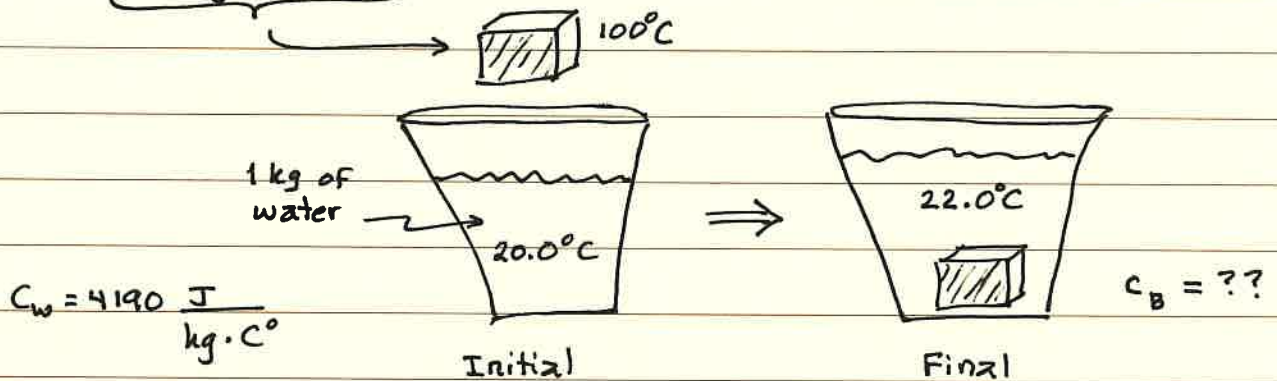 100°C
1 kg of
water
20.0°C
22.0°C
C_w = 4190 J / kg · C°
C_B = ??
Initial
Final